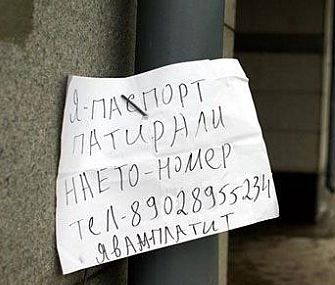 Я-ПАСПОРТ
ПАТИРАЛИ
НАЕТО-НОМЕР
ТЕЛ-89028955234
ЯВАМПЛАТИТ